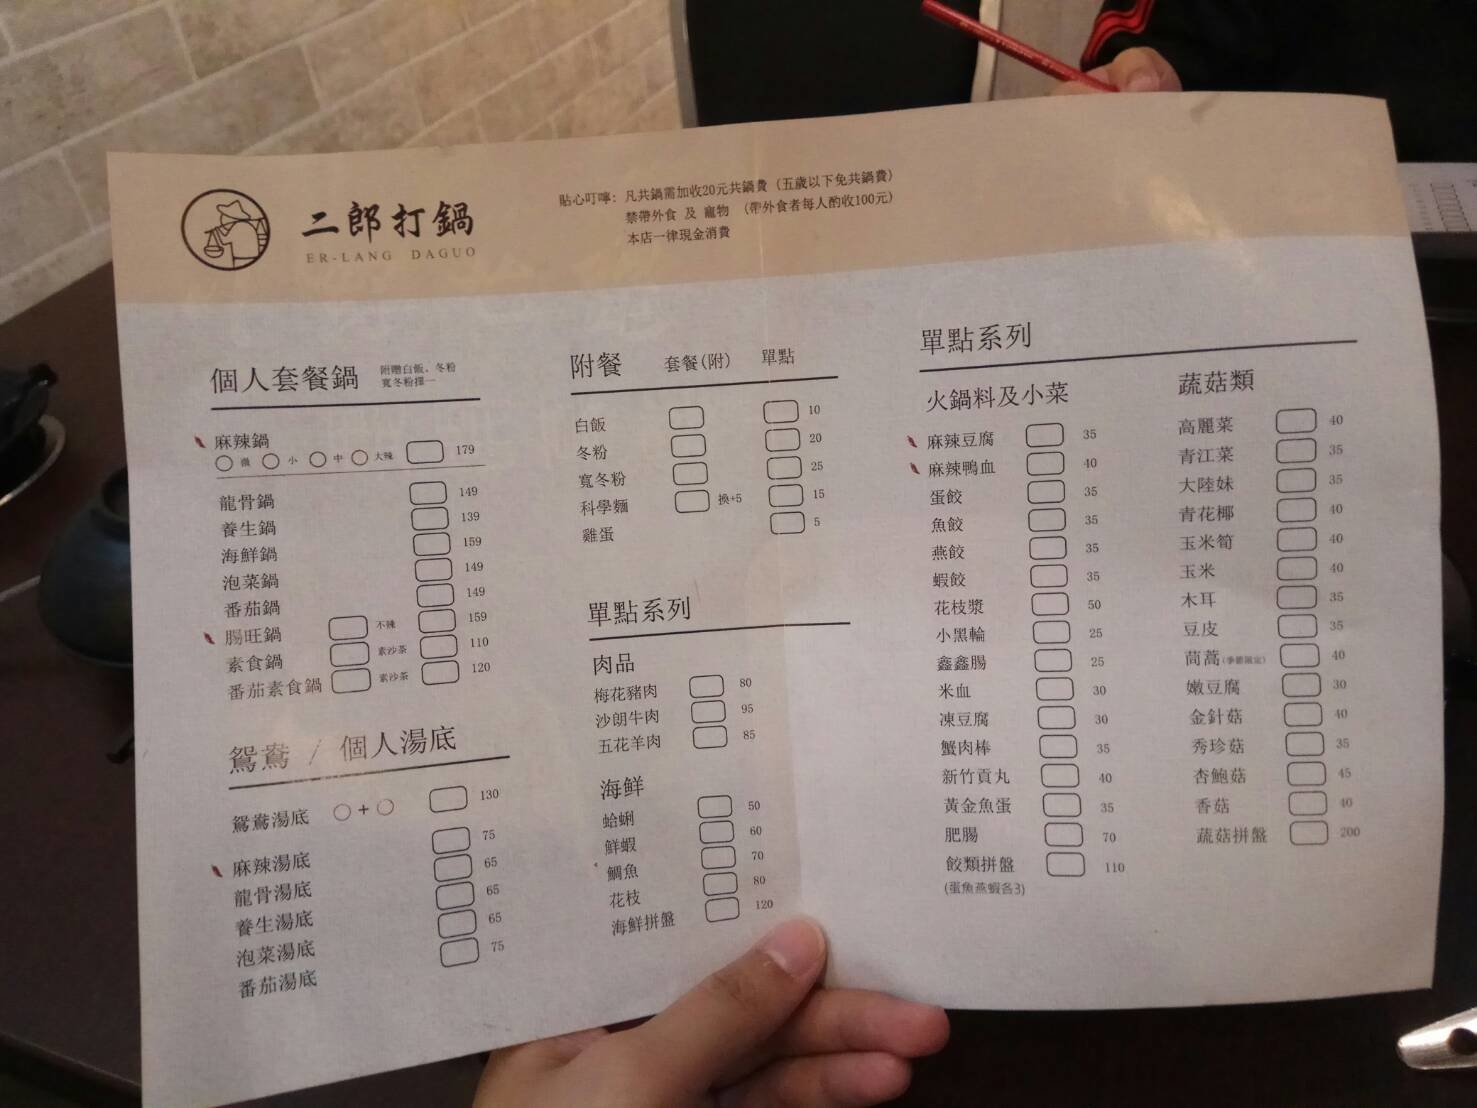 二郎打鍋
ER-LANG DAGUO
貼心叮嚀: 凡共鍋需加收20元共鍋費 (五歲以下免共鍋費)
禁帶外食 及 寵物 (帶外食者每人酌收100元)
本店一律現金消費
個人套餐鍋 附贈白飯、冬粉
寬冬粉擇一
麻辣鍋
微 小 中 大辣 179
龍骨鍋 149
養生鍋 139
海鮮鍋 159
泡菜鍋 149
番茄鍋 149
腸旺鍋 不辣 159
素食鍋 素沙茶 110
番茄素食鍋 素沙茶 120
鴛鴦 / 個人湯底
鴛鴦湯底 + 130
麻辣湯底 75
龍骨湯底 65
養生湯底 65
泡菜湯底 65
番茄湯底 75
附餐 套餐(附) 單點
白飯 10
冬粉 20
寬冬粉 25
科學麵 換+5 15
雞蛋 5
單點系列
肉品
梅花豬肉 80
沙朗牛肉 95
五花羊肉 85
海鮮
蛤蜊 50
鮮蝦 60
鯛魚 70
花枝 80
海鮮拼盤 120
單點系列
火鍋料及小菜
麻辣豆腐 35
麻辣鴨血 40
蛋餃 35
魚餃 35
燕餃 35
蝦餃 35
花枝漿 50
小黑輪 25
鑫鑫腸 25
米血 30
凍豆腐 30
蟹肉棒 35
新竹貢丸 40
黃金魚蛋 35
肥腸 70
餃類拼盤 110
(蛋魚燕蝦各3)
蔬菇類
高麗菜 40
青江菜 35
大陸妹 35
青花椰 40
玉米筍 40
玉米 40
木耳 35
豆皮 35
茼蒿(季節限定) 40
嫩豆腐 30
金針菇 40
秀珍菇 35
杏鮑菇 45
香菇 40
蔬菇拼盤 200